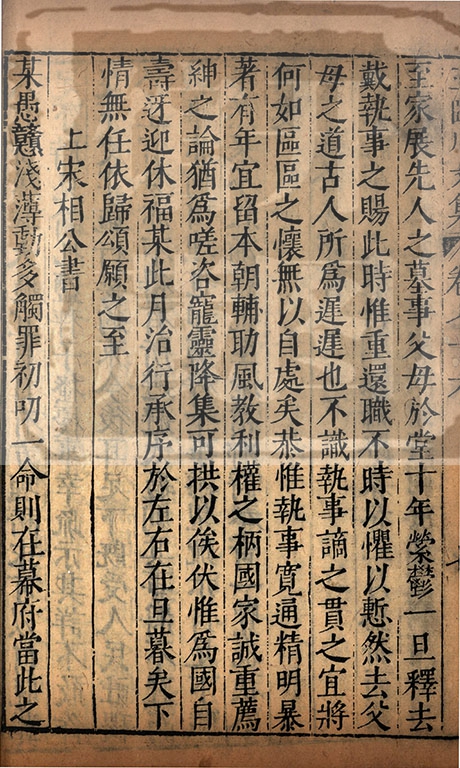 至家展先人之墓事父母於堂十年縈鬱一旦釋去
戴執事之賜此時惟重還職不時以懼以慙然去父
母之道古人所爲遲遲也不識執事謫之貫之宜將
何如區區之懷無以自處矣恭惟執事寬通精明暴
著有年宜留本朝輔助風教利權之柄國家誠重薦
紳之論猶爲嗟咨寵靈降集可拱以俟伏惟爲國自
壽迓迎休福某此月治行承序於左右在旦暮矣下
情無任依歸頌願之至
上宋相公書
某愚戇淺薄動多觸罪初叨一命則在幕府當此之